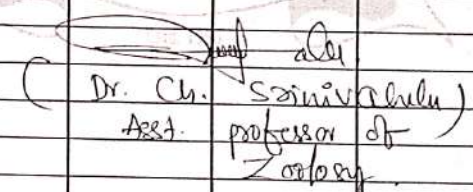 ( Dr. Ch. Srinivahulu )
Asst. professor of
Zoology